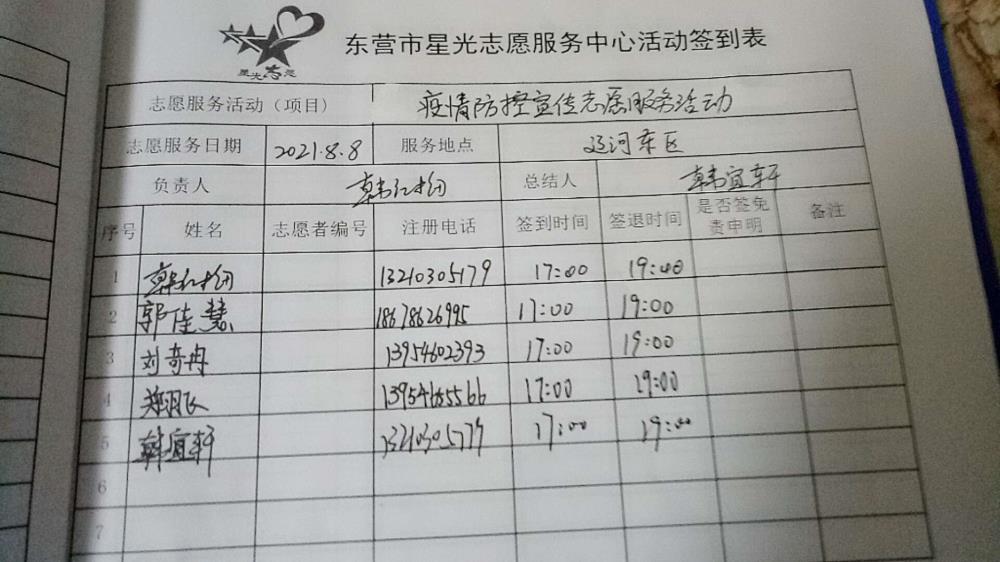 星光志愿
东营市星光志愿服务中心活动签到表
志愿服务活动（项目） 疫情防控宣传志愿服务活动
志愿服务日期 2021.8.8 服务地点 辽河东区
负责人 韩红梅 总结人 韩宜轩
序号 姓名 志愿者编号 注册电话 签到时间 签退时间 是否签免责申明 备注
1 13210305179 17:00 19:00
2 郭佳慧 18678626995 17:00 19:00
3 刘奇冉 13954602393 17:00 19:00
4 17:00 19:00
5 韩宜轩 17:00 19:00
6
7